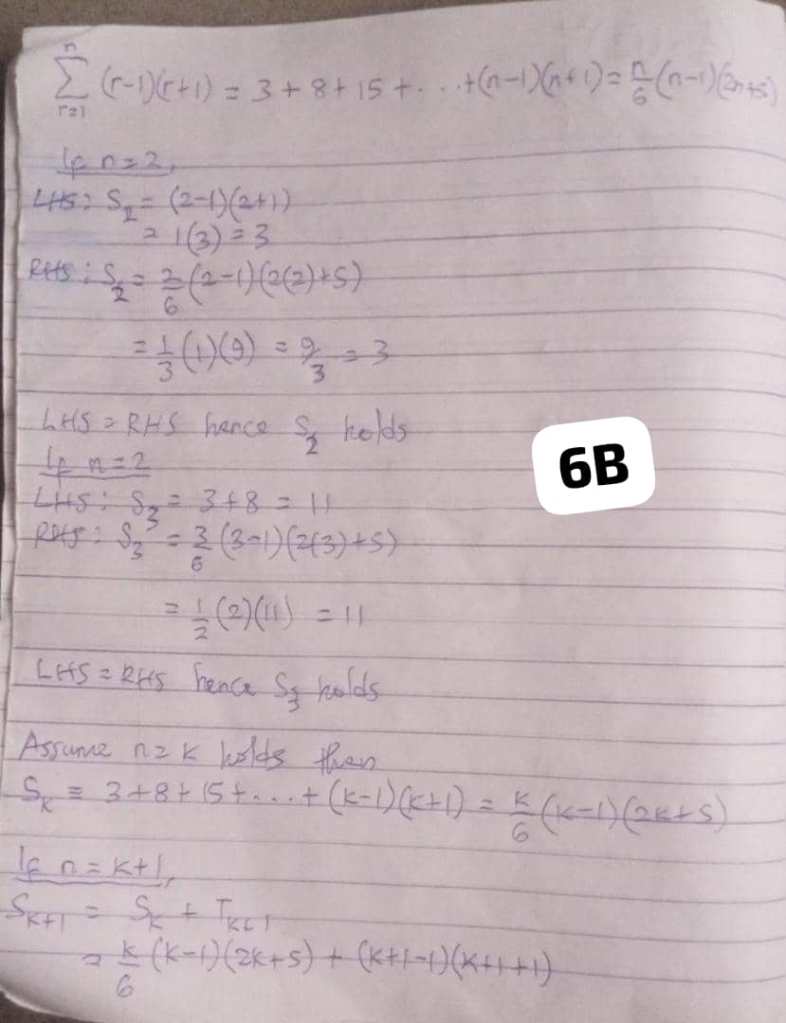 n
Σ (r-1)(r+1) = 3 + 8 + 15 + . . . + (n-1)(n+1) = n/6 (n-1)(2n+5)
r=1
If n=2,
LHS: S₂ = (2-1)(2+1)
= 1(3) = 3
RHS: S₂ = 2/6 (2-1)(2(2)+5)
= 1/3 (1)(9) = 9/3 = 3
LHS = RHS hence S₂ holds
If n=2
LHS: S₃ = 3+8 = 11
RHS: S₃ = 3/6 (3-1)(2(3)+5)
= 1/2 (2)(11) = 11
LHS = RHS hence S₃ holds
6B
Assume n=k holds then
Sₖ ≡ 3+8+15+...+(k-1)(k+1) = k/6 (k-1)(2k+5)
If n = k+1,
Sₖ₊₁ = Sₖ + Tₖ₊₁
= k/6 (k-1)(2k+5) + (k+1-1)(k+1+1)